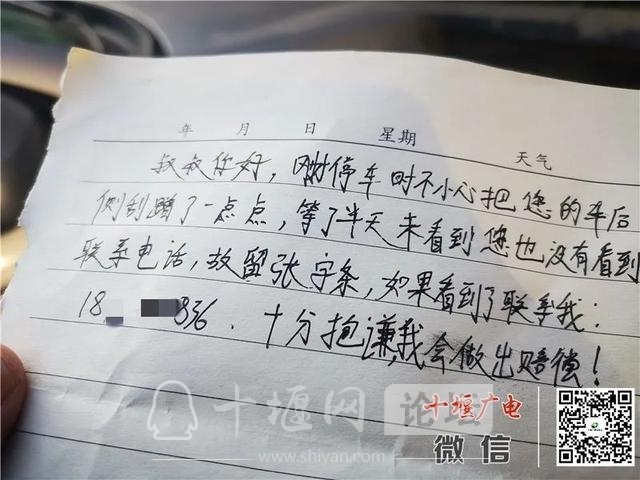 年 月 日 星期 天气
叔叔你好，刚才停车时不小心把您的车后
侧刮蹭了一点点，等了半天未看到您也没有看到
联系电话，故留张字条，如果看到了联系我：
18 836．十分抱谦，我会做出赔偿！
十堰网 论坛
www.shiyan.com
十堰广电
微信